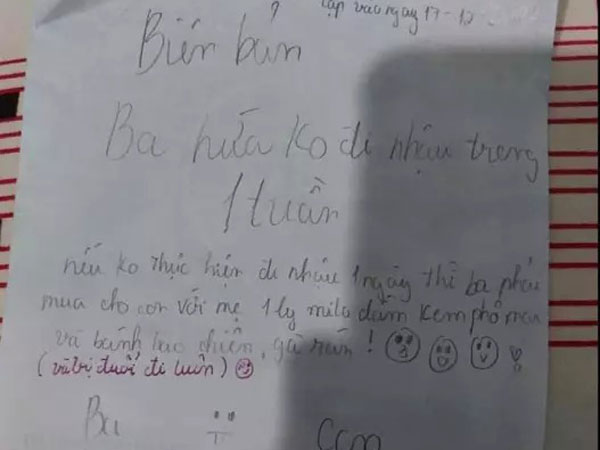 lập vào ngày 17-12
Biên bản
Ba hứa ko đi nhậu trong
1 tuần
nếu ko thực hiện đi nhậu 1 ngày thì ba phải
mua cho con với mẹ 1 ly milo dầm kem phô mai
và bánh bao chiên, gà rán!
(và bị đuổi đi luôn)
Ba
Con